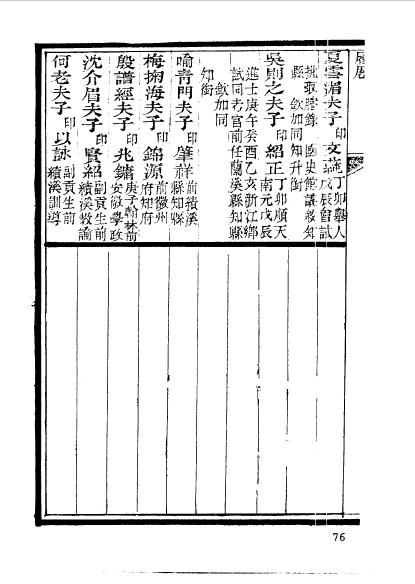 履歷
夏雲湄夫子印文燕丁卯舉人戊辰會試
挑取謄錄國史館議敘知
縣欽加同知升銜
吳則之夫子印紹正丁卯順天南元戊辰
進士庚午癸酉乙亥浙江鄉
試同考官前任蘭溪縣知縣
欽加同
知銜
喻青門夫子印肇祥前績溪縣知縣
梅掬海夫子印錦源前徽州府知府
殷譜經夫子印兆鏞庚子翰林前安徽學政
沈介眉夫子印賢紹副貢生前績溪教諭
何老夫子印以詠副貢生前績溪訓導
76